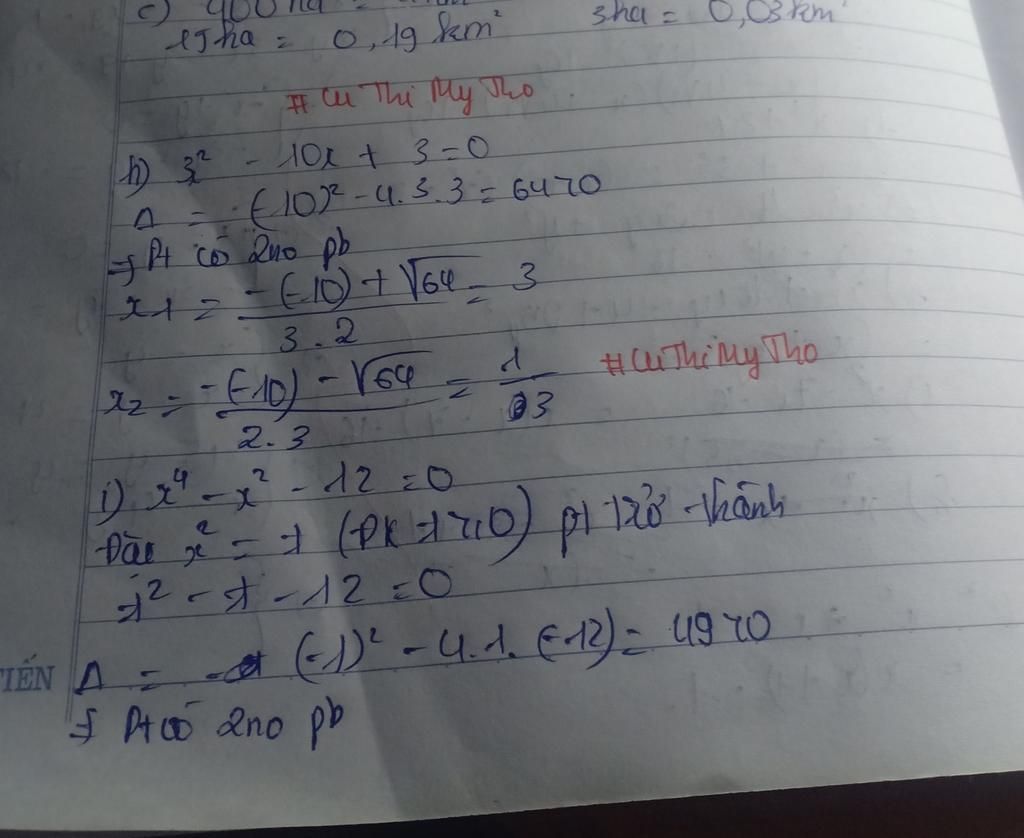 c) 400 ha =
19ha = 0,19 km² 3ha = 0,03 km²
#CuThiMyTho
h) 3x² - 10x + 3 = 0
Δ = (-10)² - 4.3.3 = 64 > 0
=> Pt có 2no pb
x1 = \frac{-(-10) + √64}{3.2} = 3
x2 = \frac{-(-10) - √64}{2.3} = \frac{1}{3} #CuThiMyTho
i) x⁴ - x² - 12 = 0
Đặt x² = t (ĐK t > 0) pt trở thành
t² - t - 12 = 0
Δ = (-1)² - 4.1.(-12) = 49 > 0
TIẾN
=> Pt có 2no pb